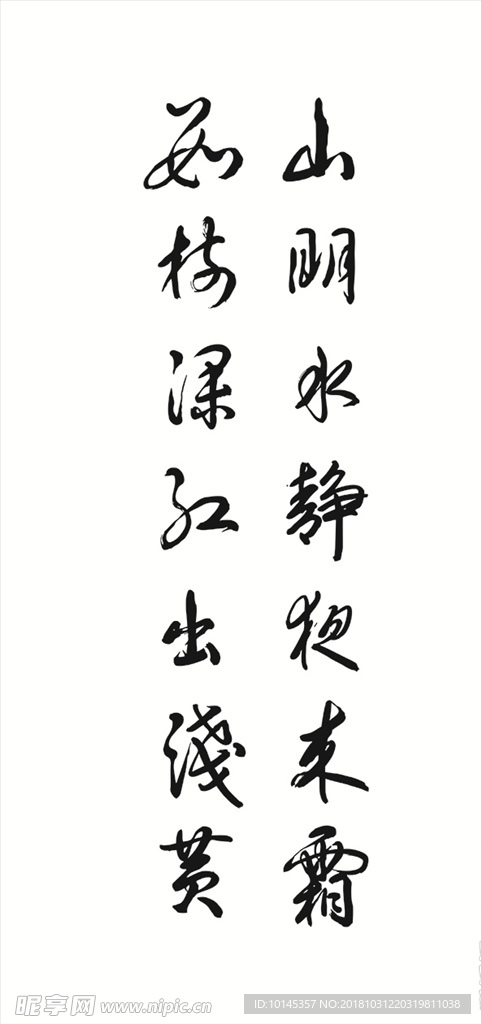 山明水静夜来霜
數樹深紅出淺黄
昵享网 www.nipic.cn
ID:10145357 NO:20181031220319811038